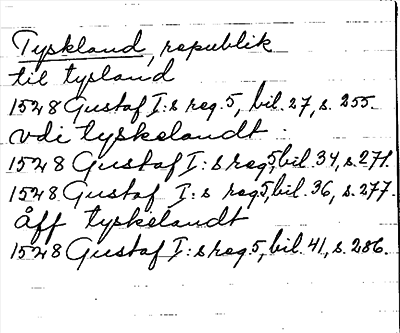 Tyskland, republik
til tysland
1528 Gustaf I:s reg. 5, bil. 27, s. 255.
vdi tyskelandt
1528 Gustaf I:s reg. 5, bil. 34, s. 271.
1528 Gustaf I:s reg. 5, bil. 36, s. 277.
åff tyskelandt
1528 Gustaf I:s reg. 5, bil. 41, s. 286.